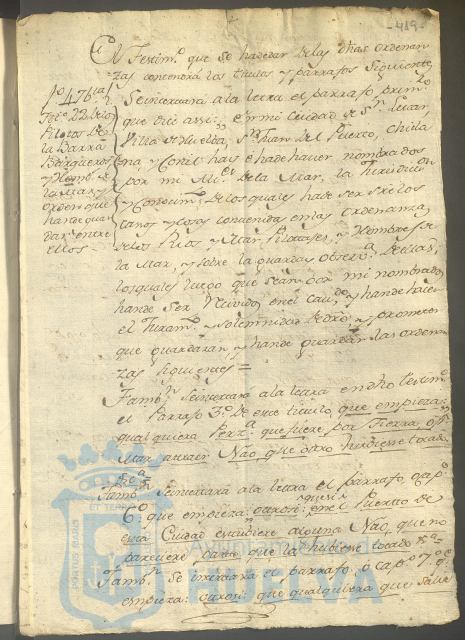 -419-
El Testim.º que se ha de dar de las dhas ordenan
zas contendra los titulos y parrafos siguiente,
Se insertara a la letra el parrafo primº
que dice assi: en mi ciudad de Sn. Lucar,
Villa de Huelva, Sn. Juan del Puerto, Chicla
na y Conil hai, e ha de haver nombrados
por mi de la Mar, la Jurisdicon
y de los quales ha de ser sre los
casos y cosas contenidas en las ordenanza,
de los Rios, y Mar, Pilotajes, y Hombres de
la Mar, y sobre la guarda y observ.ª de ellas;
los quales luego que sean por mi nombrado,
han de ser recividos en el cavdo y han de hacer
el Juramto. y solemnidad de dro. y prometer
que guardaran y han de guardar las ordenan
zas siguientes =
fo. 476
Titº. 22 de los
Pilotos de
la Barra
Barqueros
y Homb.s de
la Mar, y
orden que
han de guar
dar entre
ellos.
Tamb.n se insertara a la letra en dho testimº.
el Parrafo 3º. de este titulo, que empieza:
qualquiera Persª. que fuere por Tierra, o pr.
Mar a traer Nao que otro hubiesse tocado
&cª.
Tamb.n se insertara a la letra el parrafo, o capº.
6º. que empieza: otrosi: que si en el Puerto de
esta Ciudad estuviere alguna Nao, que no
pareciere parte que la hubiese tocado &ª.
Tamb.n se insertara el parrafo, o capº. 7º. q.e
empieza: otrosi: que qualquiera que
PORTUS MARIS
ET TERRAE
Ayuntamiento de
HUELVA